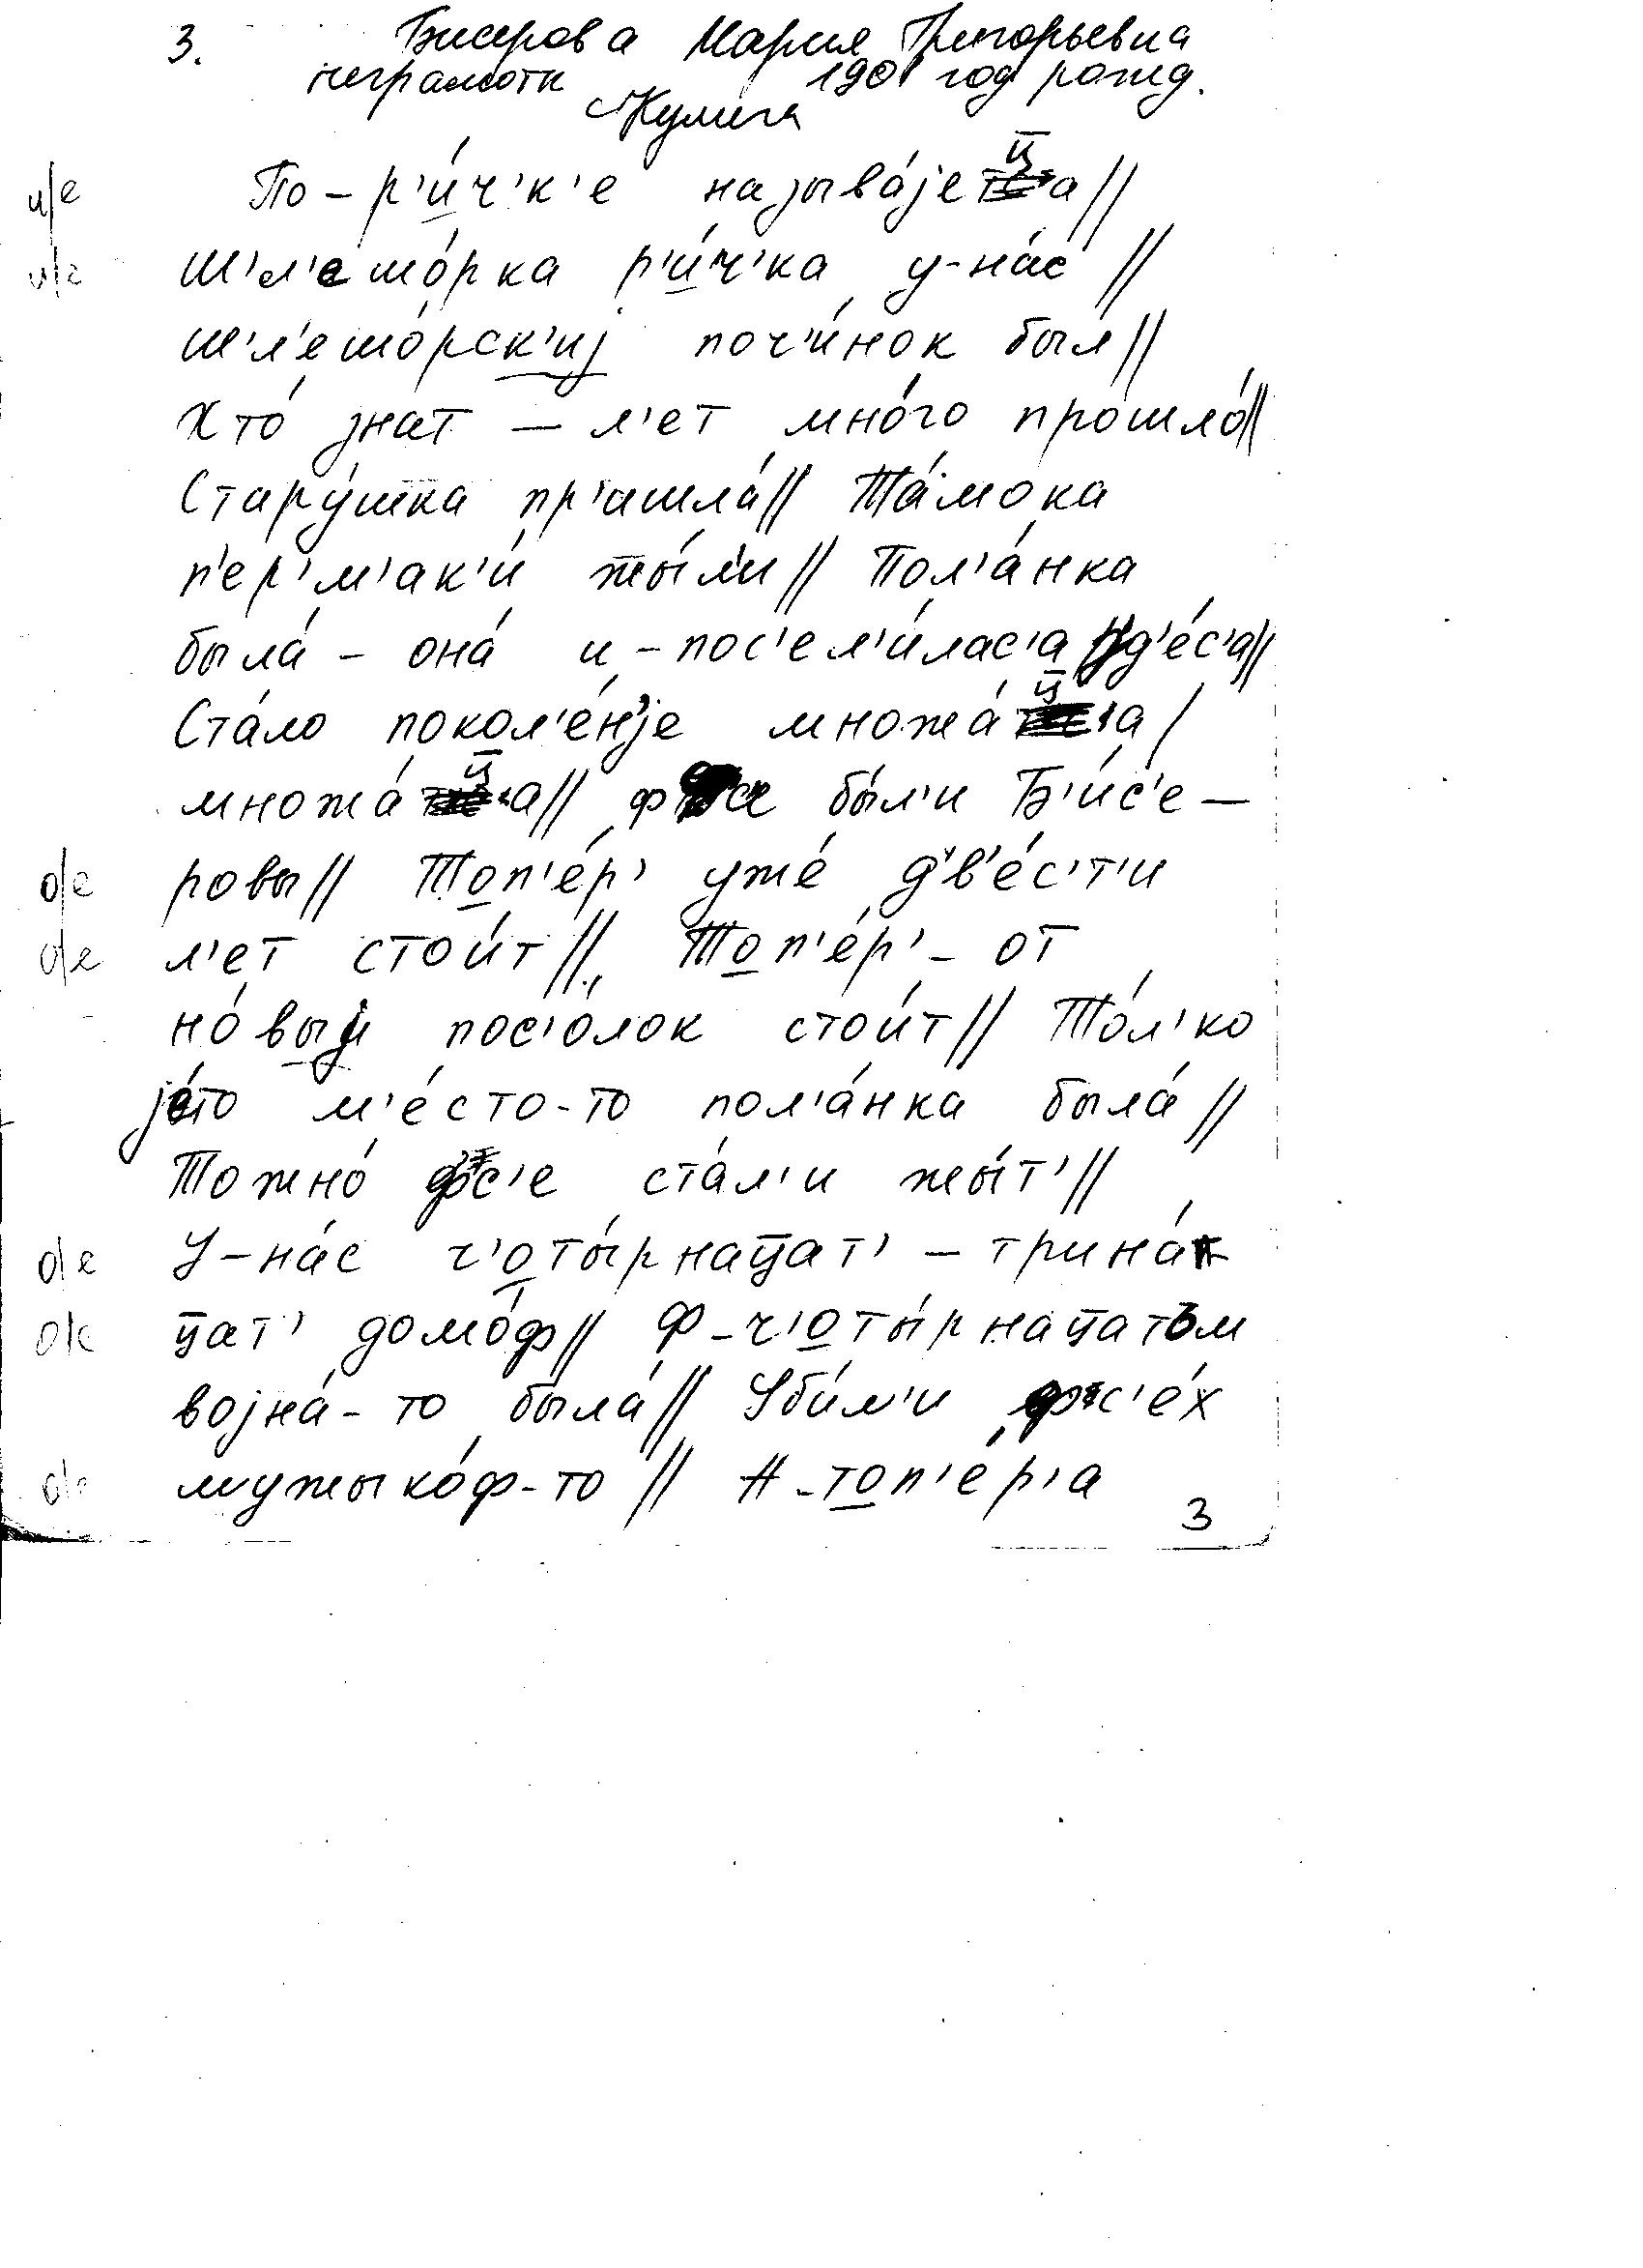 3. Бисерова Мария Григорьевна
неграмотн 1901 год рожд.
Кулига
и/е По-р'и́ч'к'е называ́jец̅а//
и/е Ш'л'ешо́рка р'и́ч'ка у-на́с//
Ш'л'ешо́рск'иj поч'и́нок был//
Хто́ знат — л'ет мно́го про́шло́//
Стару́шка пр'ишла́// Та́мока
п'ер'м'ак'и́ жы́л'и// Пол'а́нка
была́ - она́ и-пос'ел'и́лас'а зд'е́с'а//
Ста́ло покол'е́н'jе множа́ц̅а/
множа́ц̅а// фс'е бы́л'и Б'и́с'е-
о/е ровы// Топ'е́р' уже́ д'в'е́с'т'и
о/е л'ет стои́т// Топ'е́р'- от
но́выj пос'о́лок стои́т// То́л'ко
jе́то м'е́сто-то пол'а́нка была́//
Тожно́ фс'е ста́л'и жы́т'//
о/е У-на́с ч'оты́рнац̅ат' - трина́-
о/е ц̅ат' домо́ф// Ф-ч'оты́рнац̅атом
воjна́-то была́// Уби́л'и фс'е́х
о/е мужыко́ф-то// А-топ'е́р'а
3